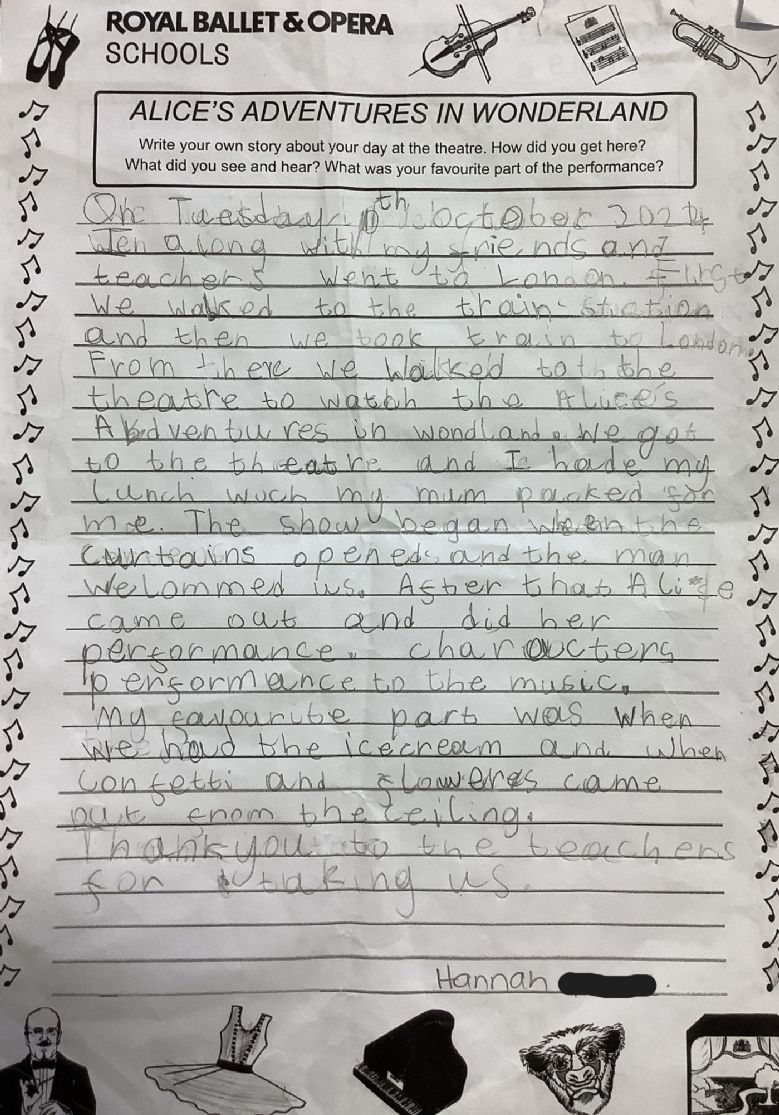 ROYAL BALLET & OPERA
SCHOOLS
ALICE'S ADVENTURES IN WONDERLAND
Write your own story about your day at the theatre. How did you get here?
What did you see and hear? What was your favourite part of the performance?
On Tuesday 10th october 2024
along with my friends and
teachers went to London. First
we walked to the train station
and then we took train to London.
From there we walked to the
theatre to watch the Alice's
Adventures in wondland. We got
to the theatre and I hade my
Lunch wuch my mum packed for
me. The show began when the
curtains opened and the man
welommed us. After that Alice
came out and did her
performance. charocters
performance to the music.
My favourite part was when
we had the icecream and when
confetti and floweres came
out from the ceiling.
Thankyou to the teachers
for taking us.
Hannah